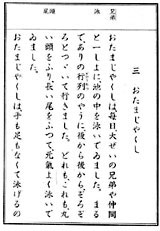 三 おたまじやくし
おたまじやくしは毎日大ぜいの兄弟や仲間
と一しよに、池の中を泳いでゐました。まる
でありの行列のやうに後から後からぞろぞ
ろとつゞいて行きました。どれもこれも、丸
い頭をふり長い尾をふつて、元氣よく泳いで
ゐました。
おたまじやくしは、手も足もなくて泳げるの
兄弟
泳
頭
尾